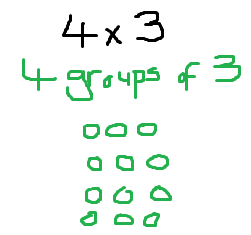 4 x 3
4 groups of 3